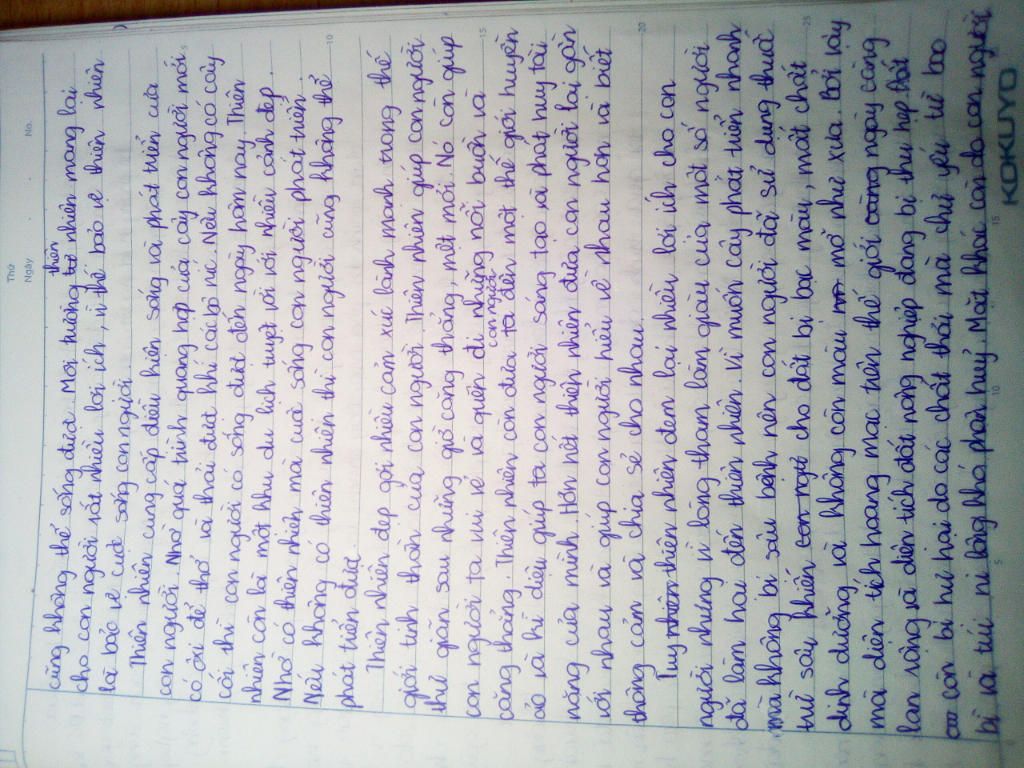 Thứ
Ngày
No.
cũng không thể sống được. Môi trường tử thiên nhiên mang lại
cho con người rất nhiều lợi ích, vì thế bảo vệ thiên nhiên
là bảo vệ cuộc sống con người.
Thiên nhiên cung cấp điều kiện sống và phát triển của
con người. Nhờ quá trình quang hợp của cây con người mới
có ôxi để thở và thải được khí cacbô níc. Nếu không có cây
cối thì con người có sống được đến ngày hôm nay. Thiên
nhiên còn là một khu du lịch tuyệt vời với nhiều cảnh đẹp.
Nhờ có thiên nhiên mà cuộc sống con người phát triển.
Nếu không có thiên nhiên thì con người cũng không thể
phát triển được
Thiên nhiên đẹp gợi nhiều cảm xúc lành mạnh trong thế
giới tinh thần của con người. Thiên nhiên giúp con người
thư giãn sau những giờ căng thẳng, mệt mỏi. Nó còn giúp
con người ta vui vẻ và quên đi những nỗi buồn và
căng thẳng. Thiên nhiên còn đưa con người ta đến một thế giới huyền
ảo và kì diệu giúp ta con người sáng tạo và phát huy tài
năng của mình. Hơn hết thiên nhiên đưa con người lại gần
với nhau và giúp con người hiểu về nhau hơn và biết
thông cảm và chia sẻ cho nhau.
Tuy nhiên thiên nhiên đem lại nhiều lợi ích cho con
người nhưng vì lòng tham làm giàu của một số người
đã làm hại đến thiên nhiên. Vì muốn cây phát triển nhanh
mà không bị sâu bệnh nên con người đã sử dụng thuốc
trừ sâu khiến con ngời cho đất bị bạc màu, mất chất
dinh dưỡng và không còn màu mỡ như xưa. Bởi vậy
mà diện tích hoang mạc trên thế giới càng ngày càng
lan rộng và diện tích đất nông nghiệp đang bị thu hẹp. Đất
còn bị hư hại do các chất thải mà chủ yếu từ bao
bì và túi ni lông khó phân huỷ. Mặt khác còn do con người
5
10
15
20
25
5
10
15
KOKUYO